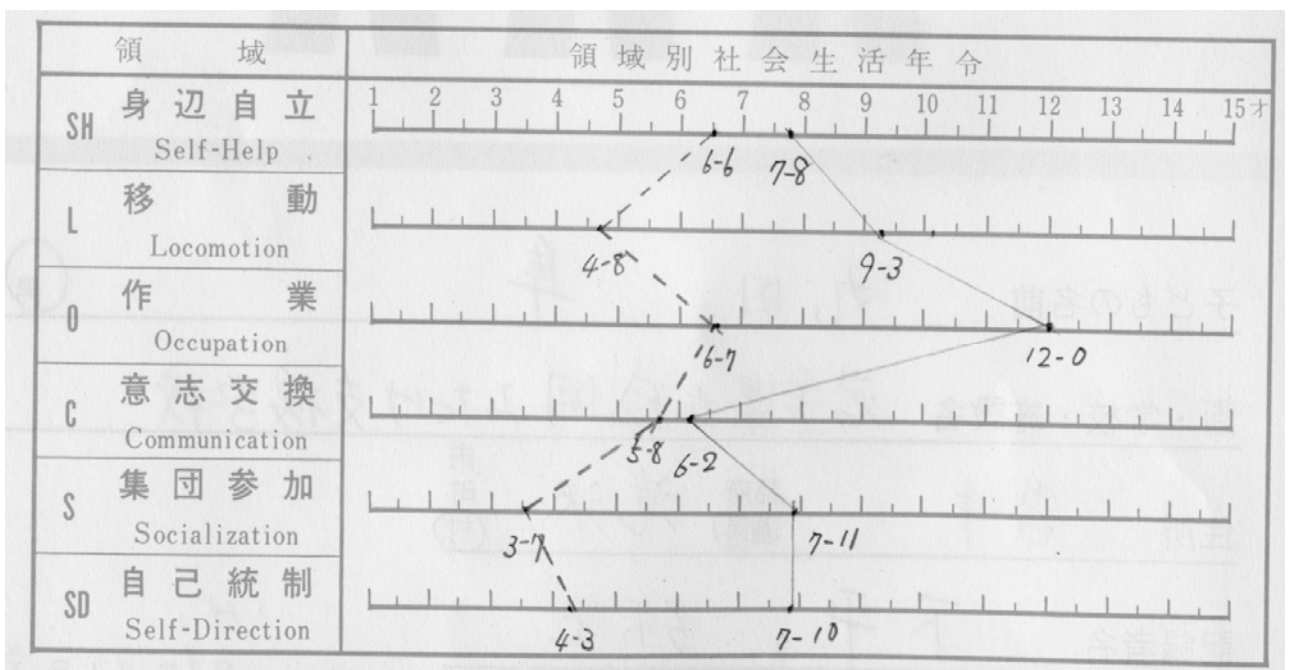 領域 領域別社会生活年令
SH 身辺自立 1 2 3 4 5 6 7 8 9 10 11 12 13 14 15才
Self-Help 6-6 7-8
L 移動
Locomotion 4-8 9-3
O 作業
Occupation 6-7 12-0
C 意志交換
Communication 5-8 6-2
S 集団参加
Socialization 3-7 7-11
SD 自己統制
Self-Direction 4-3 7-10